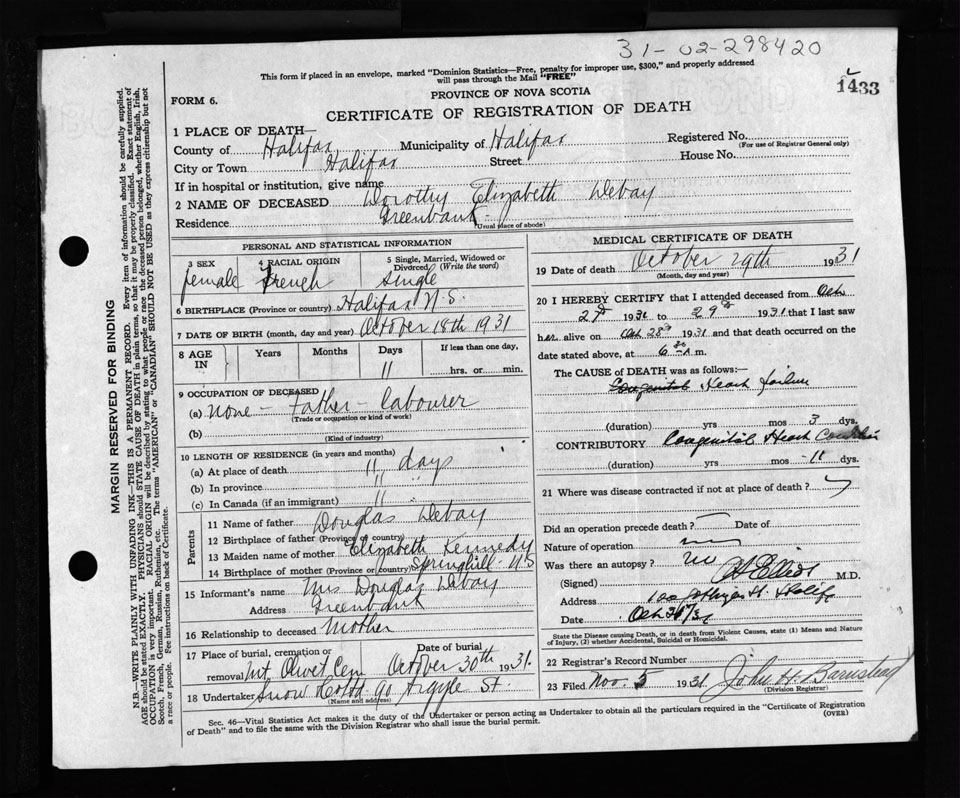 31-02-298420
This form if placed in an envelope, marked "Dominion Statistics—Free, penalty for improper use, $300," and properly addressed
will pass through the Mail "FREE"
1433
PROVINCE OF NOVA SCOTIA
FORM 6.
CERTIFICATE OF REGISTRATION OF DEATH
1 PLACE OF DEATH—
County of Halifax Municipality of Halifax Registered No.
(For use of Registrar General only)
City or Town Halifax Street House No.
If in hospital or institution, give name
2 NAME OF DECEASED Dorothy Elizabeth Debay
Residence Greenbank
(Usual place of abode)
PERSONAL AND STATISTICAL INFORMATION
3 SEX 4 RACIAL ORIGIN 5 Single, Married, Widowed or Divorced (Write the word)
female French single
6 BIRTHPLACE (Province or country) Halifax N.S.
7 DATE OF BIRTH (month, day and year) October 18th 1931
8 AGE IN Years Months Days If less than one day,
11 hrs. or min.
9 OCCUPATION OF DECEASED
(a) None - Father - labourer
(Trade or occupation or kind of work)
(b)
(Kind of industry)
10 LENGTH OF RESIDENCE (in years and months)
(a) At place of death 11 days
(b) In province 11 "
(c) In Canada (if an immigrant) 11
Parents
11 Name of father Douglas Debay
12 Birthplace of father (Province or country)
13 Maiden name of mother Elizabeth Kennedy
14 Birthplace of mother (Province or country) Springhill N.S
15 Informant's name Mrs Douglas Debay
Address Greenbank
16 Relationship to deceased Mother
17 Place of burial, cremation or removal Mt Olivet Cem Date of burial October 30th 1931.
18 Undertaker Snow Co Ltd 90 Argyle St.
(Name and address)
MEDICAL CERTIFICATE OF DEATH
19 Date of death October 29th 1931
(Month, day and year)
20 I HEREBY CERTIFY that I attended deceased from Oct.
27th 1931 to 29th 1931 that I last saw
her alive on Oct 28th 1931 and that death occurred on the
date stated above, at 6 30 A m.
The CAUSE of DEATH was as follows:—
Congenital Heart Failure
(duration) yrs mos 3 dys.
CONTRIBUTORY Congenital Heart Condition
(duration) yrs mos - 11 dys.
21 Where was disease contracted if not at place of death?
Did an operation precede death? Date of
Nature of operation
Was there an autopsy? no
(Signed) Elliot M.D.
Address 100 St. Halifx
Date Oct 30/31
State the Disease causing Death, or in death from Violent Causes, state (1) Means and Nature
of Injury, (2) whether Accidental, Suicidal or Homicidal.
22 Registrar's Record Number
23 Filed Nov. 5 1931 John H. Barnstead
(Division Registrar)
Sec. 46—Vital Statistics Act makes it the duty of the Undertaker or person acting as Undertaker to obtain all the particulars required in the "Certificate of Registration
of Death" and to file the same with the Division Registrar who shall issue the burial permit.
(OVER)
MARGIN RESERVED FOR BINDING
N.B.—WRITE PLAINLY WITH UNFADING INK—THIS IS A PERMANENT RECORD. Every item of information should be carefully supplied.
AGE should be stated EXACTLY. PHYSICIANS should STATE CAUSE OF DEATH in plain terms, so that it may be properly classified. Exact statement of
OCCUPATION is very important. RACIAL ORIGIN will be described by stating to what people or race the deceased person belonged, whether English, Irish,
Scotch, French, German, Russian, Ruthenian, etc. The terms "AMERICAN" or "CANADIAN" SHOULD NOT BE USED as they express citizenship but not
a race or people. Fee instructions on back of Certificate.